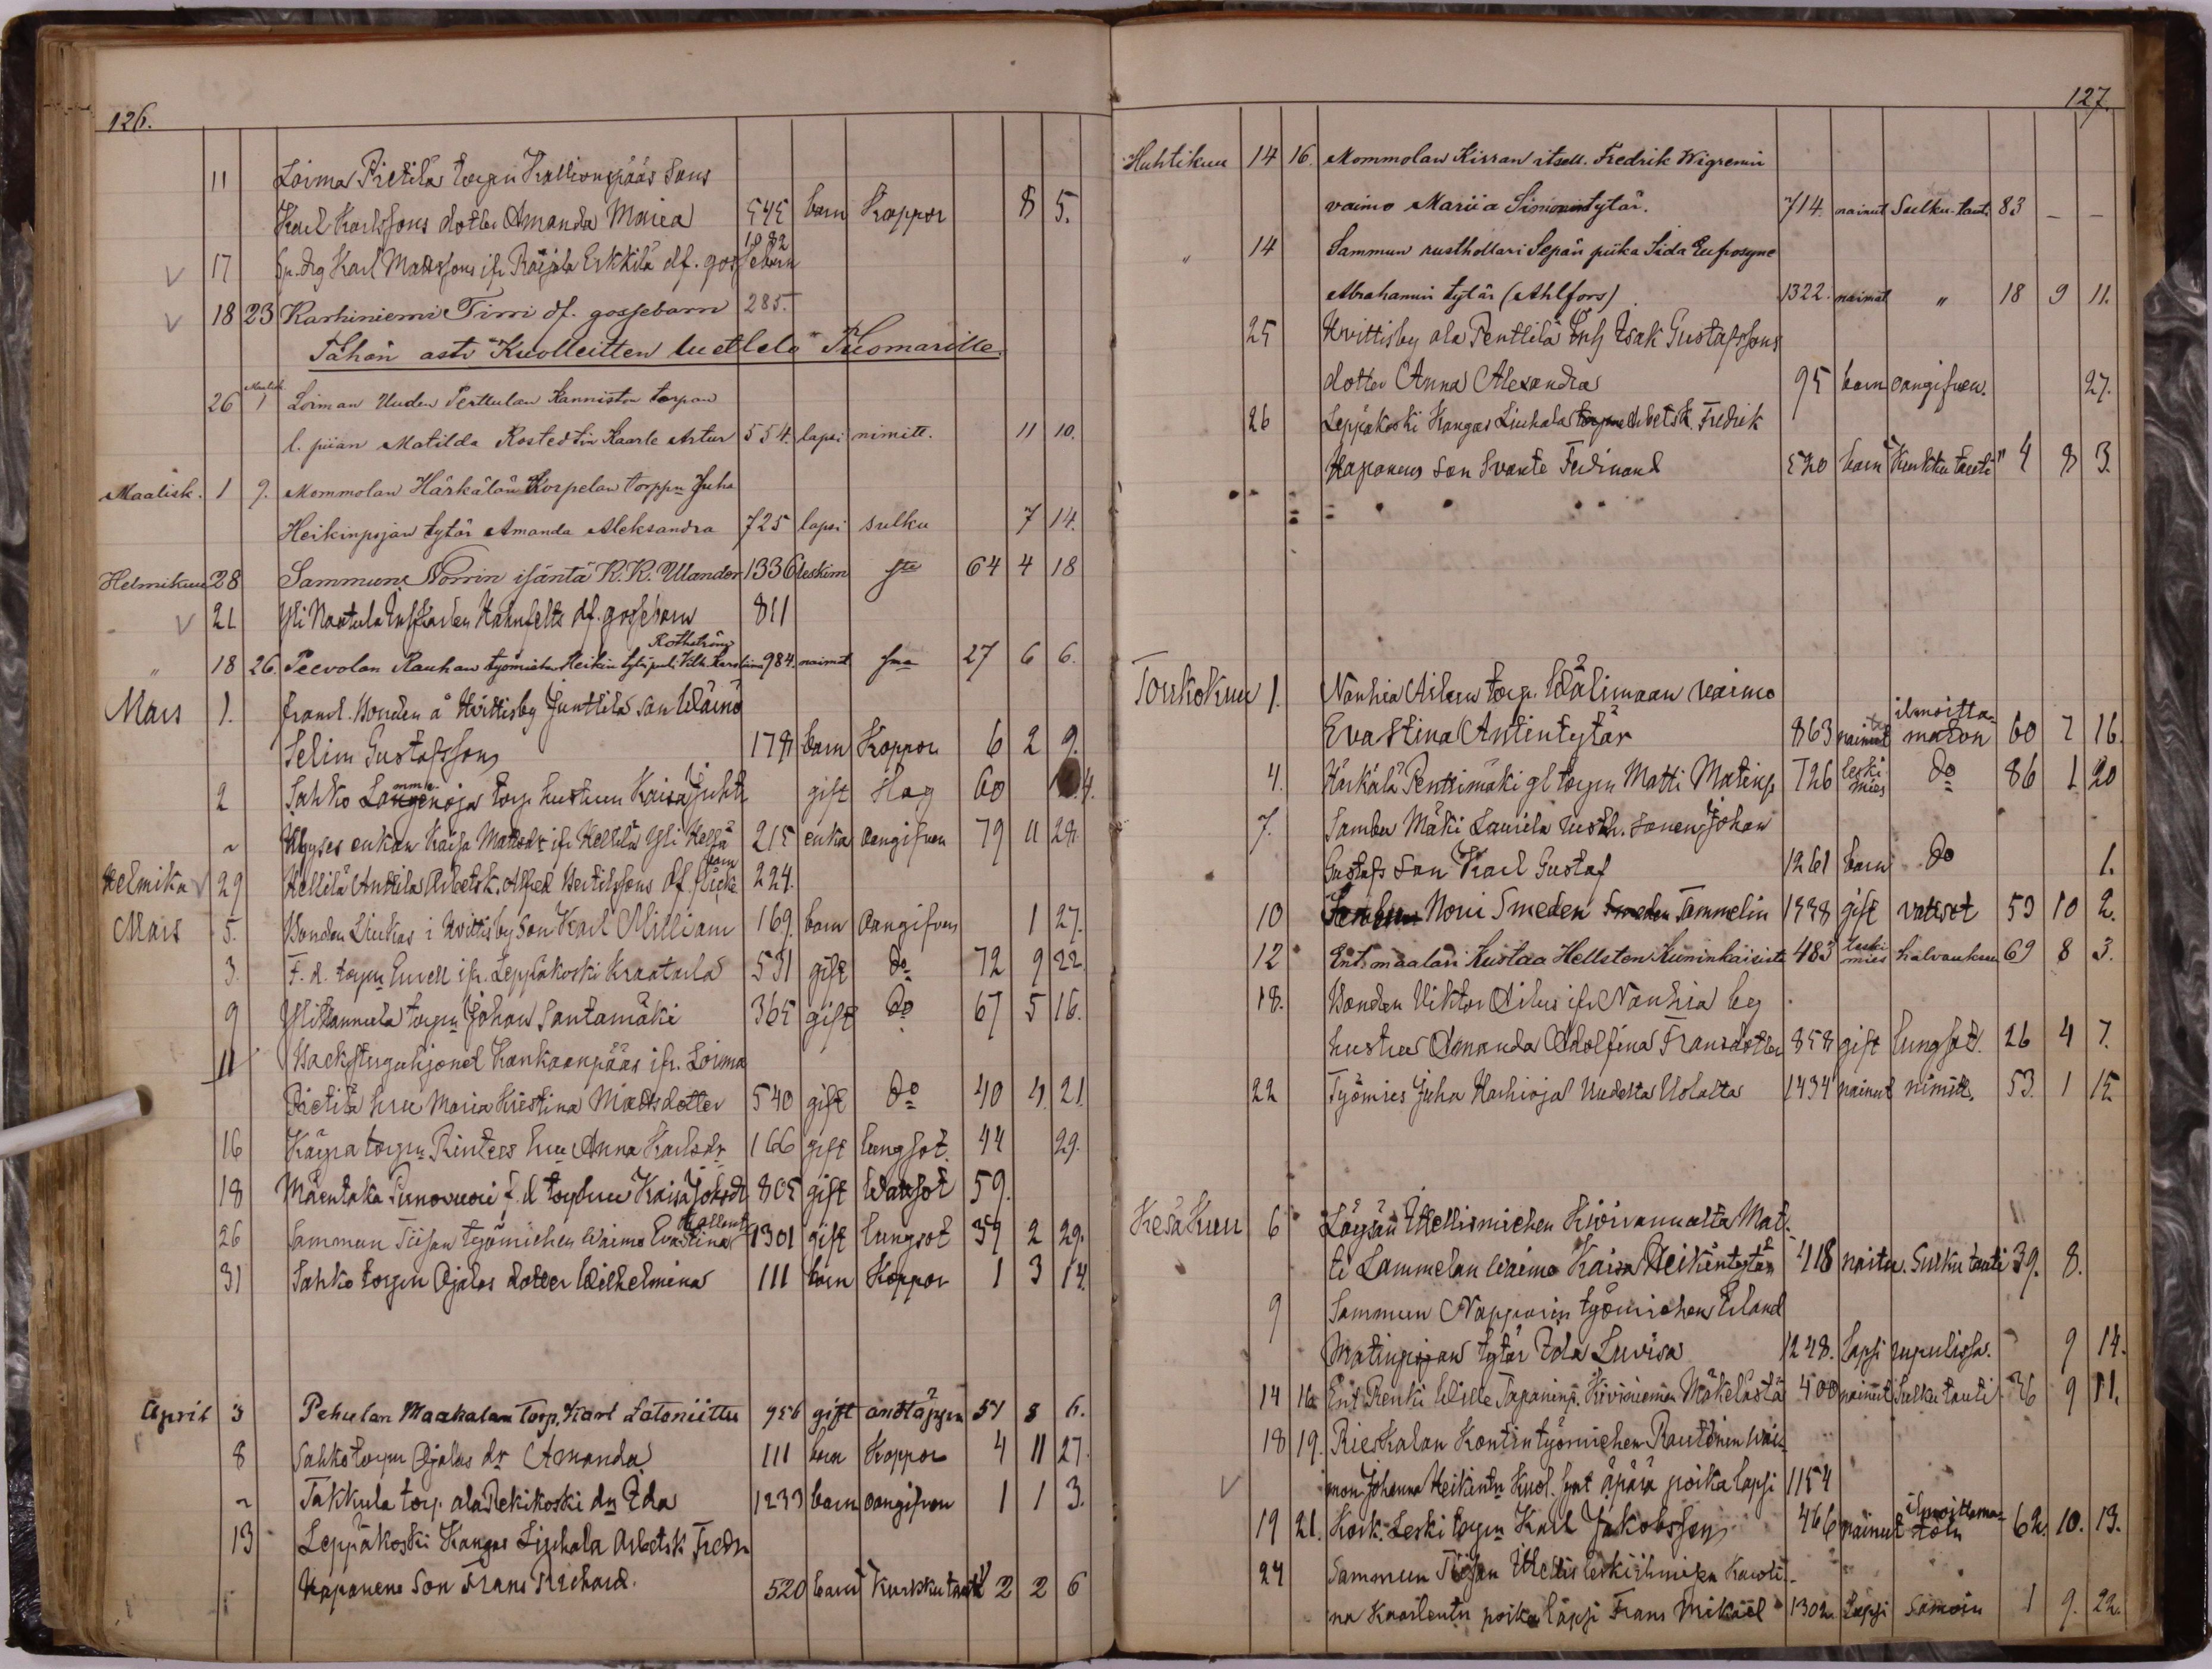 126.
11 Loima Pietilä torpn Kallionpääs Sons
Karl Karlssons dotter Amanda Maria 545 barn Koppor 8 5.
17 Sp.drg Karl Mattssons ifr. Raijala Erkkilä df. gossebarn 1082
18 23 Karhiniemi Tirri df. gossebarn 285.
Tähän asti Kuolleitten luettelo Tuomarille.
26 Maalisk. 1 Loiman Uuden Perttulan Kanniston torpan
l. piian Matilda Rostedtin Kaarle Artur 554. lapsi nimitt. 11 10.
Maalisk. 1 9. Mommolan Härkälän Korpelan torppn Juha
Heikinpojan tytär Amanda Aleksandra 725 lapsi sulku 7 14.
Helmikuu 28 Sammun Norrin isäntä K. K. Ulander 1336 leskim 64 4 18
21 Yli Naatula Kahnfelts df. gossebarn 811
Rothström
" 18 26. Peevolan Rauhan työmiehen Heikin Vilh. Karoliina 984. naimat 27 6 6.
Mars 1. Bonden å Hvittisby Junttila son Wäinö
Selim Gustafsson 178 barn Koppor 6 2 9.
2 Sahko torp hustrun Kaisa gift Hag 60 4.
~ enkan Kaisa Matsdr ifr Kellilä Yli Kellä 215 enka oangifven 79 11 28.
Helmik 29 Kellilä Anttila Arbetsk. Alfred Bertilssons df. flicke barn 224.
Mars 5. Bonden Liukas i Hvittisby Son Karl William 169. barn oangifven 1 27.
3. F. d. torpn ifr. Leppäkoski Kraataila 531 gift do 72 9 22
9 Ylistannela torpn Johan Santamäki 365 gift do 67 5 16.
11 Backstuguhjonet Kankaanpääs ifr. Loima
Pietilä hru Maria Kristina Mattsdotter 540 gift do 40 4 21.
16 Käyrä torpn Rinters hru Anna Karlsdr 166 gift lungsot. 44 29.
18 Mäentaka f. d torp hru Kaisa 805 gift Watsot 59.
26 Sammun Tiisan työmiehen Waimo Eva Stina 1301 gift lungsot 39 2 29.
31 Sahko torpn Ojalas dotter Wilhelmina 111 barn Koppor 1 3 14.
April 3 Pehulan Maakalan Torp. Karl Latoniittu 956 gift andtäppa 51 8 6.
8 Sahko torpn Ojalas dr Amanda 111 barn Koppor 4 11 27.
~ Takkula torp. ala Rekikoski dr Ida 1233 barn oangifven 1 1 3.
13 Leppäkoski Kangas Liuhala Arbetsk Fredr
Haponens Son Frans Richard. 520 barn "Kurkku tauti" 2 2 6
127.
Huhtikuu 14 16. Mommolan Kirran itsell. Fredrik Wigrenin
vaimo Mariia Simonintytär. 714. nainut Sulku-taut. 83 – –
" 14 Sammun rusthollari Sepän piika Iida Eufrosyne
Abrahamin tytär (Ahlfors) 1322. naimat. " 18 9 11.
25 Hvittisby ala Penttilä Inh Isak Gustafssons
dotter Anna Alexandra 95 barn oangifven. 27.
26 Leppäkoski Kangas Liuhala Arbetsk. Fredrik
Haponens son Svante Ferdinand 520 barn "Kurkku tauti" 4 8 3.
Toukokuu 1. Nanhia Ailun torp. Wälimaan vaimo
Eva Stina Antintytär 863 nainut ilmoitta-maton 60 7 16.
4. Härkälä Penttimäki gl torpn Matti Matinp 726 leski mies do 86 1 20
7. Sambu Mäki Laurila rusth. sonen Johan
Gustafs son Karl Gustaf 1261 barn do 1.
10 Norri Smeden Tammelin 1338 gift vatsot 53 10 2.
12 Ent. maalari Kustaa Hellsten Kuninkaisista 483 leski mies halvauksen 69 8 3.
18. Bonden Viktor Ailus ifr Nanhia by
hustru Amanda Adolfina Fransdotter 858 gift lungsot. 26 4 7.
22 Työmies Juha Harhioja Uudesta Uolatta 1434 nainut nimitt. 53. 1 15
Kesäkuu 6 Löysän Itsellismiehen Kivirannalta Mat-
ti Lammelan Waimo Kaisa Heikintytär 418 naitu. Sulku tauti 39. 8.
9 Sammun Napparin työmiehen Erland
Matinpojan tytär Ida Luvisa 1248. lapsi rupulissa. 9 14.
14 16 Ent. Renki Wille Tapaninp. Kiviniemen Mäkelästä 400 nainut Sulku tauti 36 9 11.
18 19. Rieskalan Kontin työmiehen Rautanin wai-
mon Johanna Heikintr Kuol. synt äpärä poika lapsi 1154
19 21. Kork. Leski torpn Karl Jakobsson 466 nainut ilmoittama-toin 62 10. 13.
24 Sammun Tiisan Itellis leski ihmisen Karoli-
na Kaarlentr poika läpsi Frans Mikael 1302 Lapsi Samoin 1 9. 22.